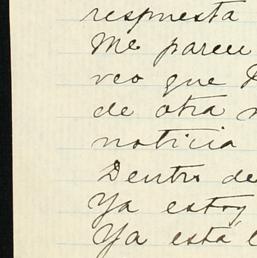 respuesta
Me parece
veo que
de otra
noticia
Dentro de
Ya estoy
Ya está